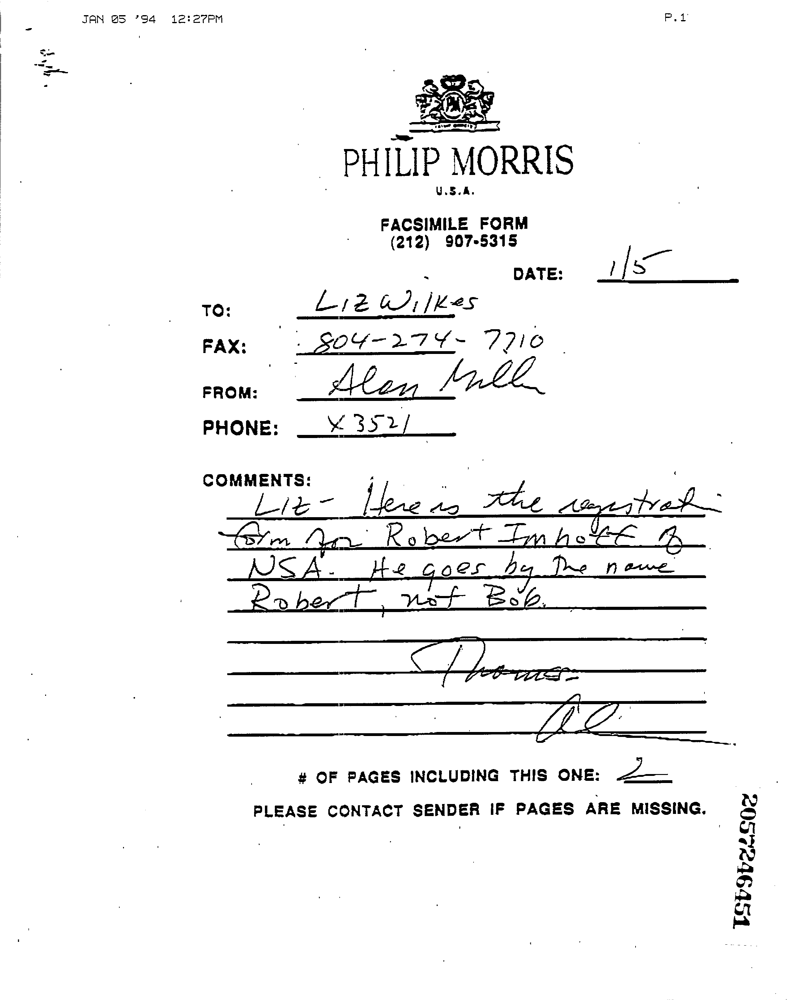 JAN 05 '94 12:27PM P.1
PM
PHILIP MORRIS
U.S.A.
FACSIMILE FORM
(212) 907-5315
DATE: 1/5
TO: Liz Wilkes
FAX: 804-274-7710
FROM: Alan Miller
PHONE: X3521
COMMENTS:
Liz - Here is the registrati
form for Robert Imhoff of
NSA. He goes by the name
Robert, not Bob.
Al
# OF PAGES INCLUDING THIS ONE: 2
PLEASE CONTACT SENDER IF PAGES ARE MISSING.
2057246451